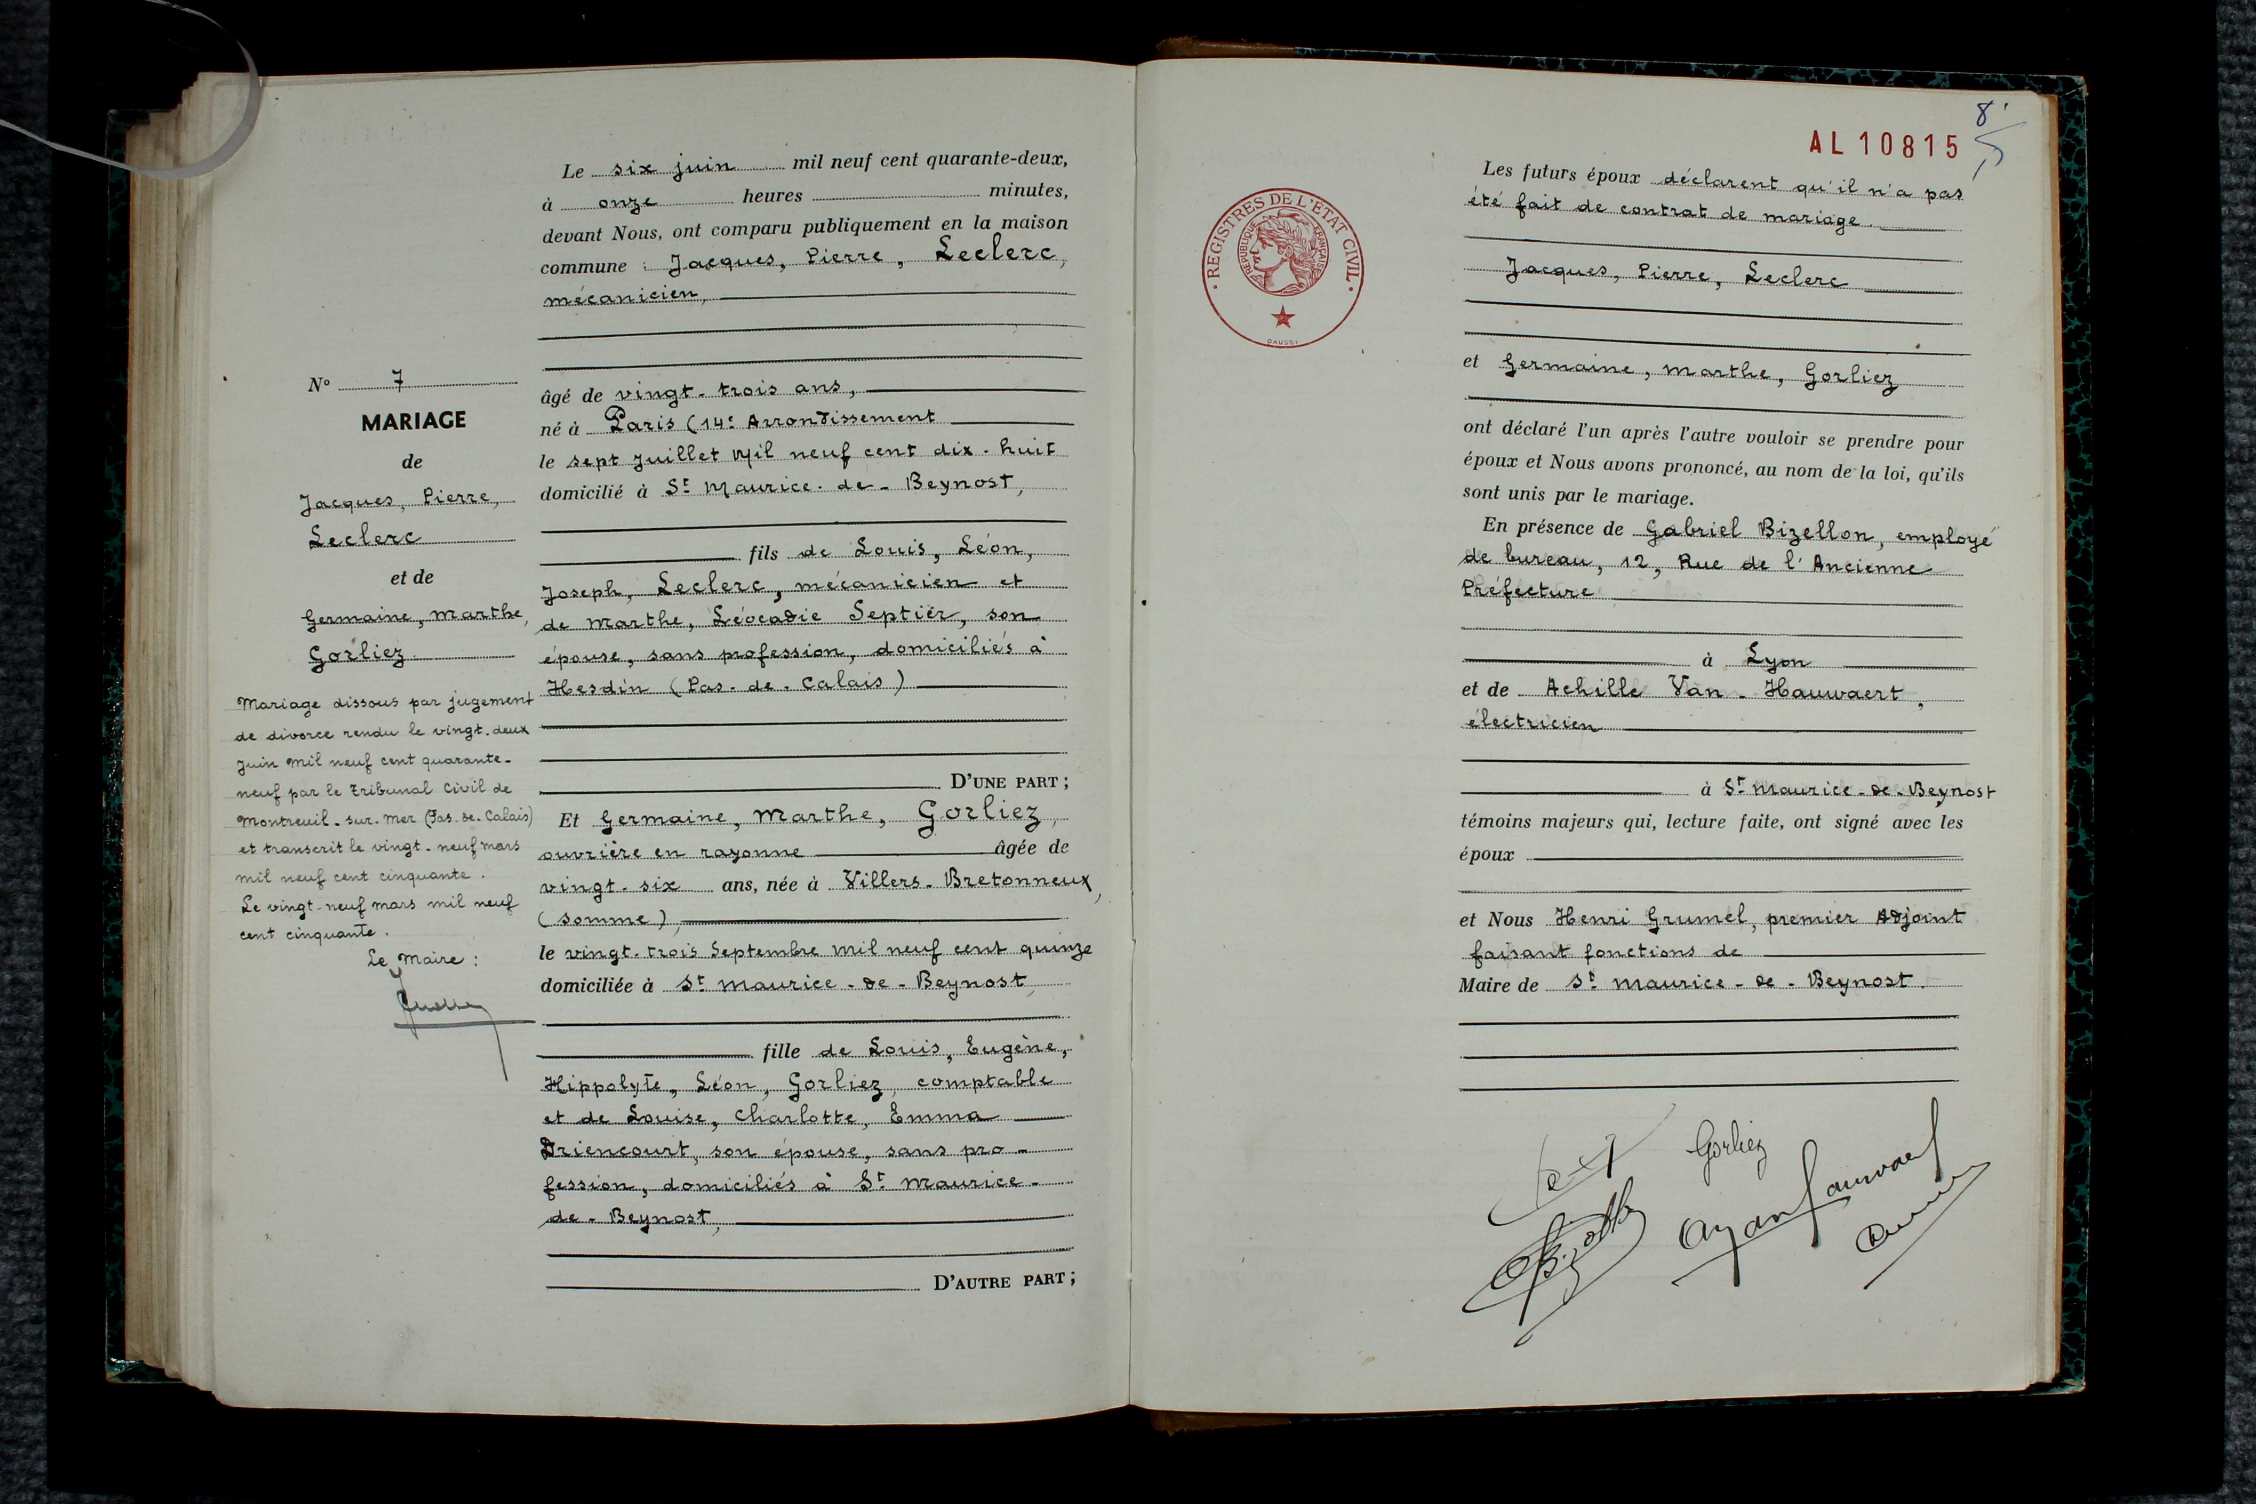 Le six juin mil neuf cent quarante-deux,
à onze heures minutes,
devant Nous, ont comparu publiquement en la maison
commune : Jacques, Pierre, Leclerc,
mécanicien,
âgé de vingt-trois ans,
né à Paris (14e Arrondissement
le sept Juillet Mil neuf cent dix-huit
domicilié à St Maurice-de-Beynost,
fils de Louis, Léon,
Joseph, Leclerc, mécanicien et
de Marthe, Léocadie Septier, son
épouse, sans profession, domiciliés à
Hesdin (Pas-de-Calais)
D'UNE PART ;
Et Germaine, Marthe, Gorliez,
ouvrière en rayonne âgée de
vingt-six ans, née à Villers-Bretonneux,
(Somme),
le vingt-trois Septembre mil neuf cent quinze
domiciliée à St Maurice-de-Beynost,
fille de Louis, Eugène,
Hippolyte, Léon, Gorliez, comptable
et de Louise, Charlotte, Emma
Driencourt, son épouse, sans pro-
fession, domiciliés à St Maurice-
de-Beynost,
D'AUTRE PART ;
N° 7
MARIAGE
de
Jacques, Pierre,
Leclerc
et de
Germaine, Marthe,
Gorliez
Mariage dissous par jugement
de divorce rendu le vingt-deux
Juin mil neuf cent quarante-
neuf par le Tribunal Civil de
Montreuil-sur-Mer (Pas-de-Calais)
et transcrit le vingt-neuf mars
mil neuf cent cinquante.
Le vingt-neuf mars mil neuf
cent cinquante.
Le Maire :
8
AL 10815
REGISTRES DE L'ETAT CIVIL
REPUBLIQUE FRANÇAISE
DAUSSY
Les futurs époux déclarent qu'il n'a pas
été fait de contrat de mariage.
Jacques, Pierre, Leclerc
et Germaine, Marthe, Gorliez
ont déclaré l'un après l'autre vouloir se prendre pour
époux et Nous avons prononcé, au nom de la loi, qu'ils
sont unis par le mariage.
En présence de Gabriel Bizellon, employé
de bureau, 12, Rue de l'Ancienne
Préfecture
à Lyon
et de Achille Van-Hauwaert,
électricien
à St Maurice-de-Beynost
témoins majeurs qui, lecture faite, ont signé avec les
époux
et Nous Henri Grumel, premier Adjoint
faisant fonctions de
Maire de St Maurice-de-Beynost.
Gorliez